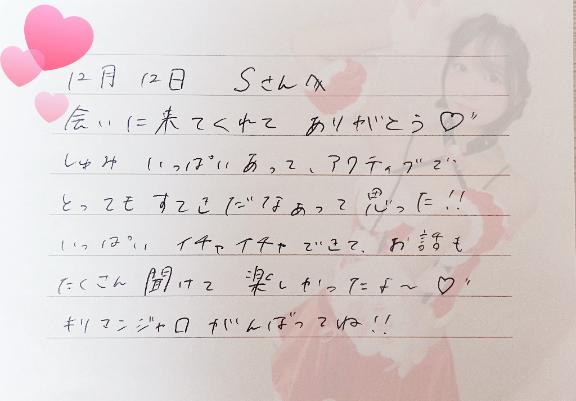 12月 12日 Sさんへ
会いに来てくれて ありがとう♡"
しゅみ いっぱいあって、アクティブで
とっても すてきだなぁって 思った!!
いっぱい イチャイチャできて、お話も
たくさん 聞けて 楽しかったよ〜♡"
キリマンジャロ がんばってね!!